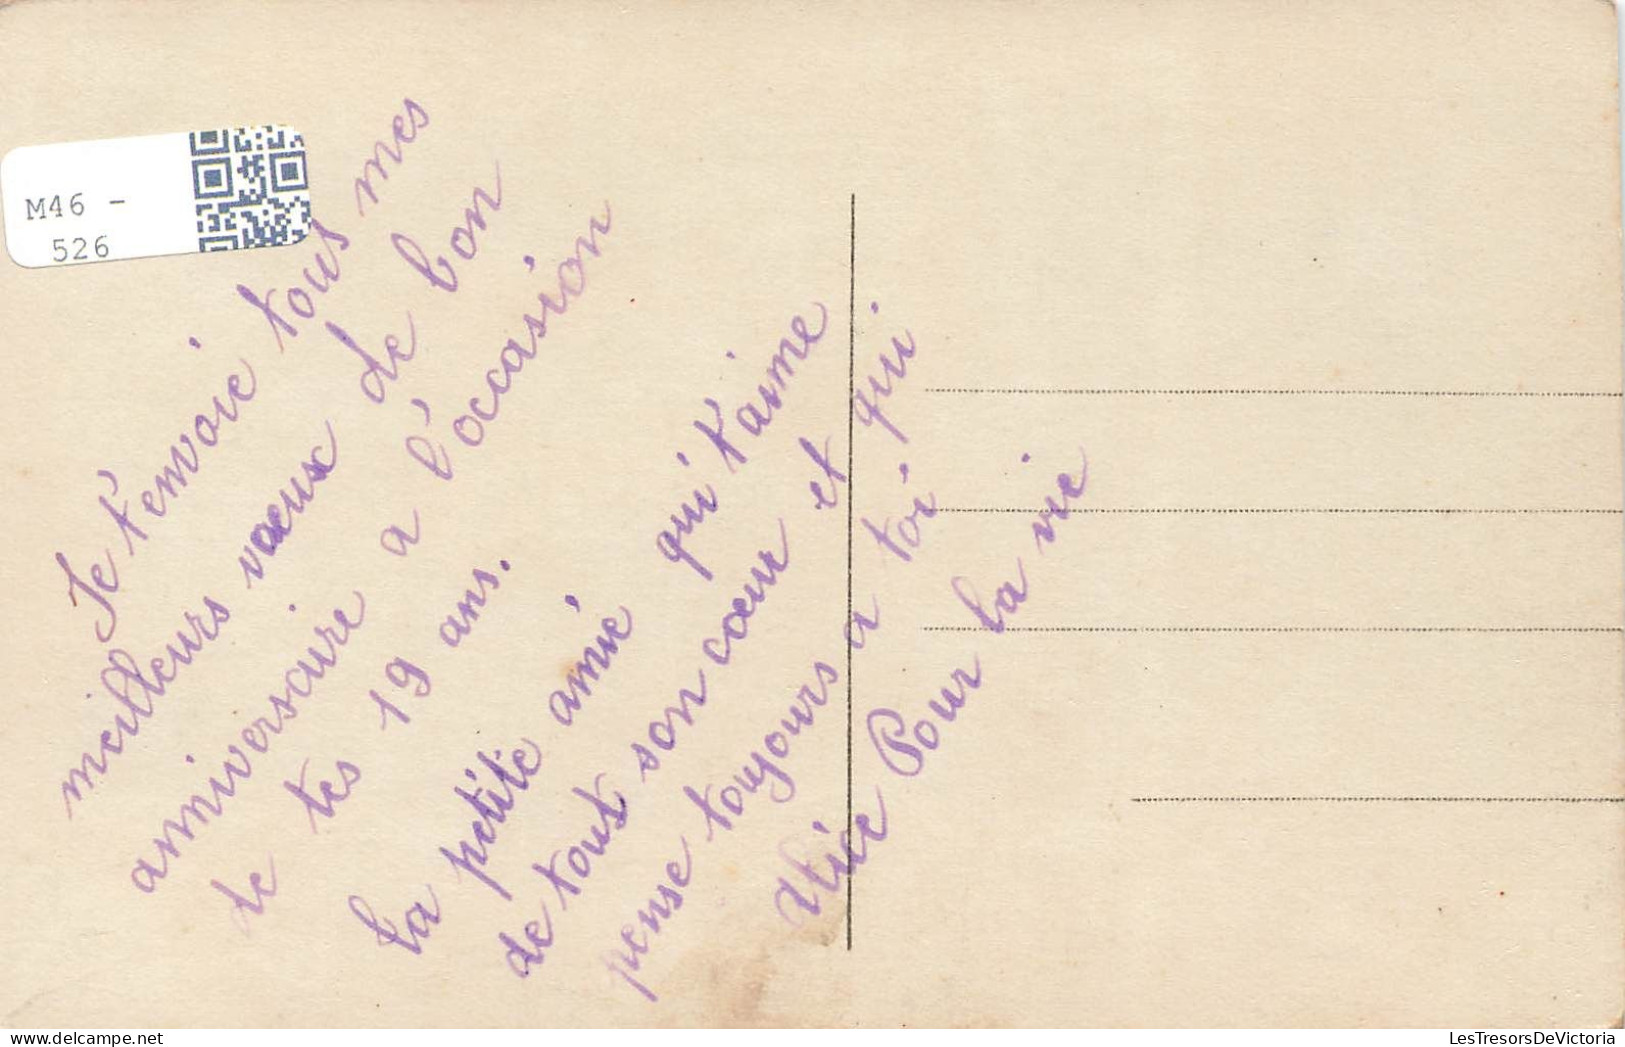 M46 -
526
Je t'envoie tous mes
meilleurs vœux de bon
anniversaire a l'occasion
de tes 19 ans.
ta petite amie qui t'aime
de tout son cœur et qui
pense toujours a toi
Alice Pour la vie
LesTresorsDeVictoria